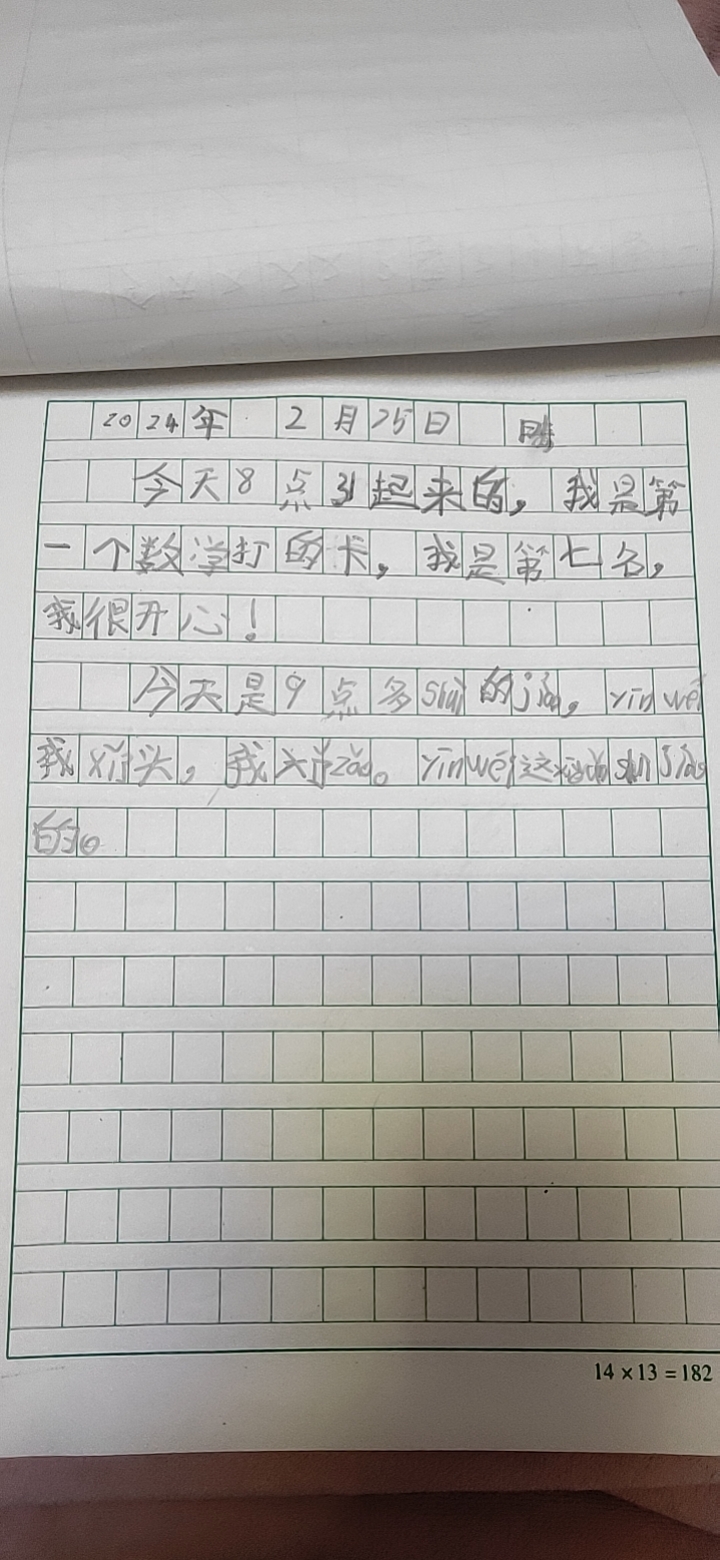 2024年 2月25日
今天8点31起来的,我是第
一个数学打的卡,我是第七名,
我很开心!
今天是9点多shuì的jiào,yīn wéi
我xǐ头,我xǐzǎo。yīnwéi这shuì jiào
的。
14×13=182